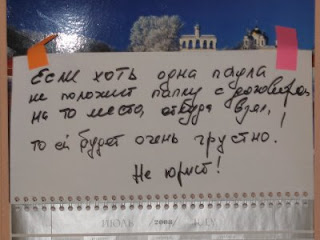 Если хоть одна падла
не положит папку с договорами
на то место, откуда взял,
то ей будет очень грустно.
Не юрист!
ИЮЛЬ /2008/ JULY